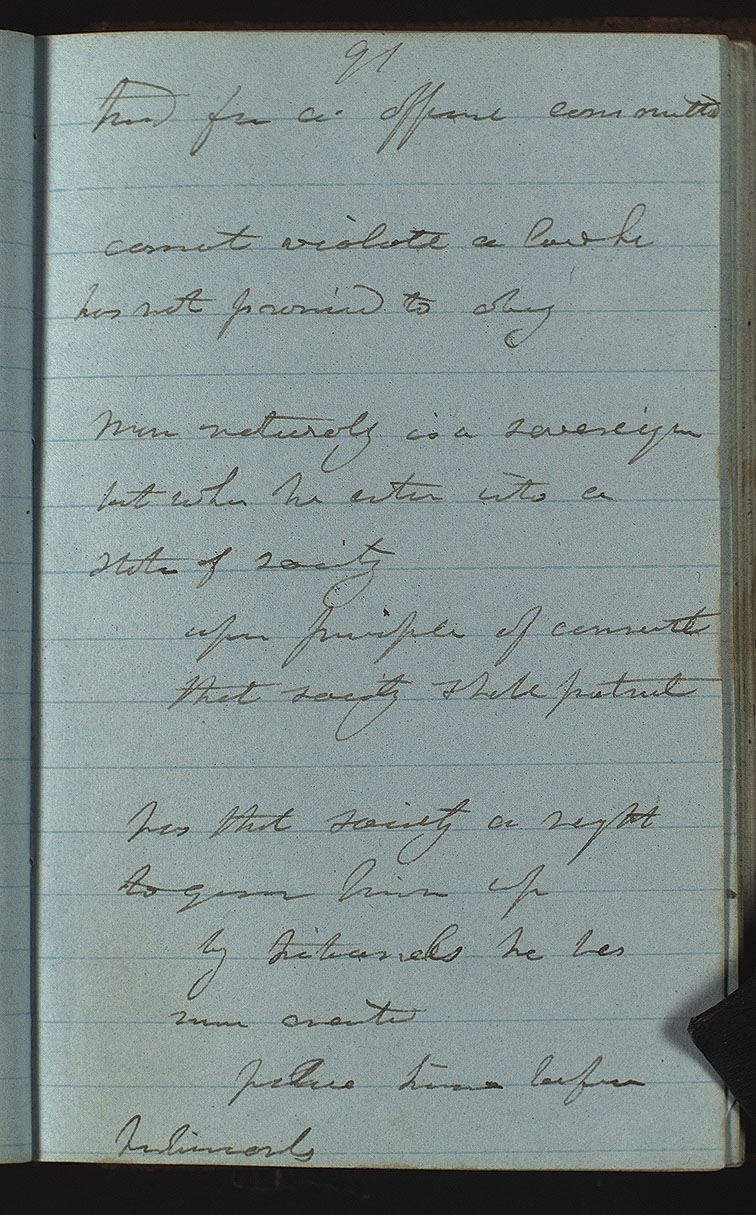 91
tried for a offense committed
cannot violate a law he
has not promised to obey
Man naturaly is a sovereign
but when he enter into a
state of society
upon principle of consent
that society shall protect
has that society a right
to given him up
by tribunals he has
never created
before
tribunals